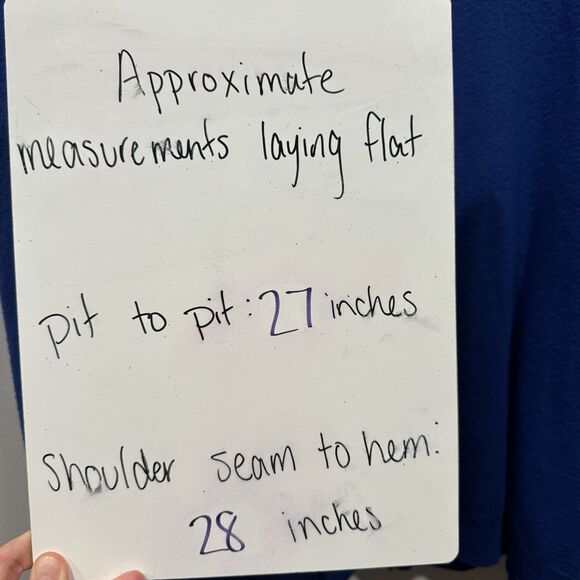 Approximate
measurements laying flat
pit to pit: 27 inches
Shoulder seam to hem:
28 inches